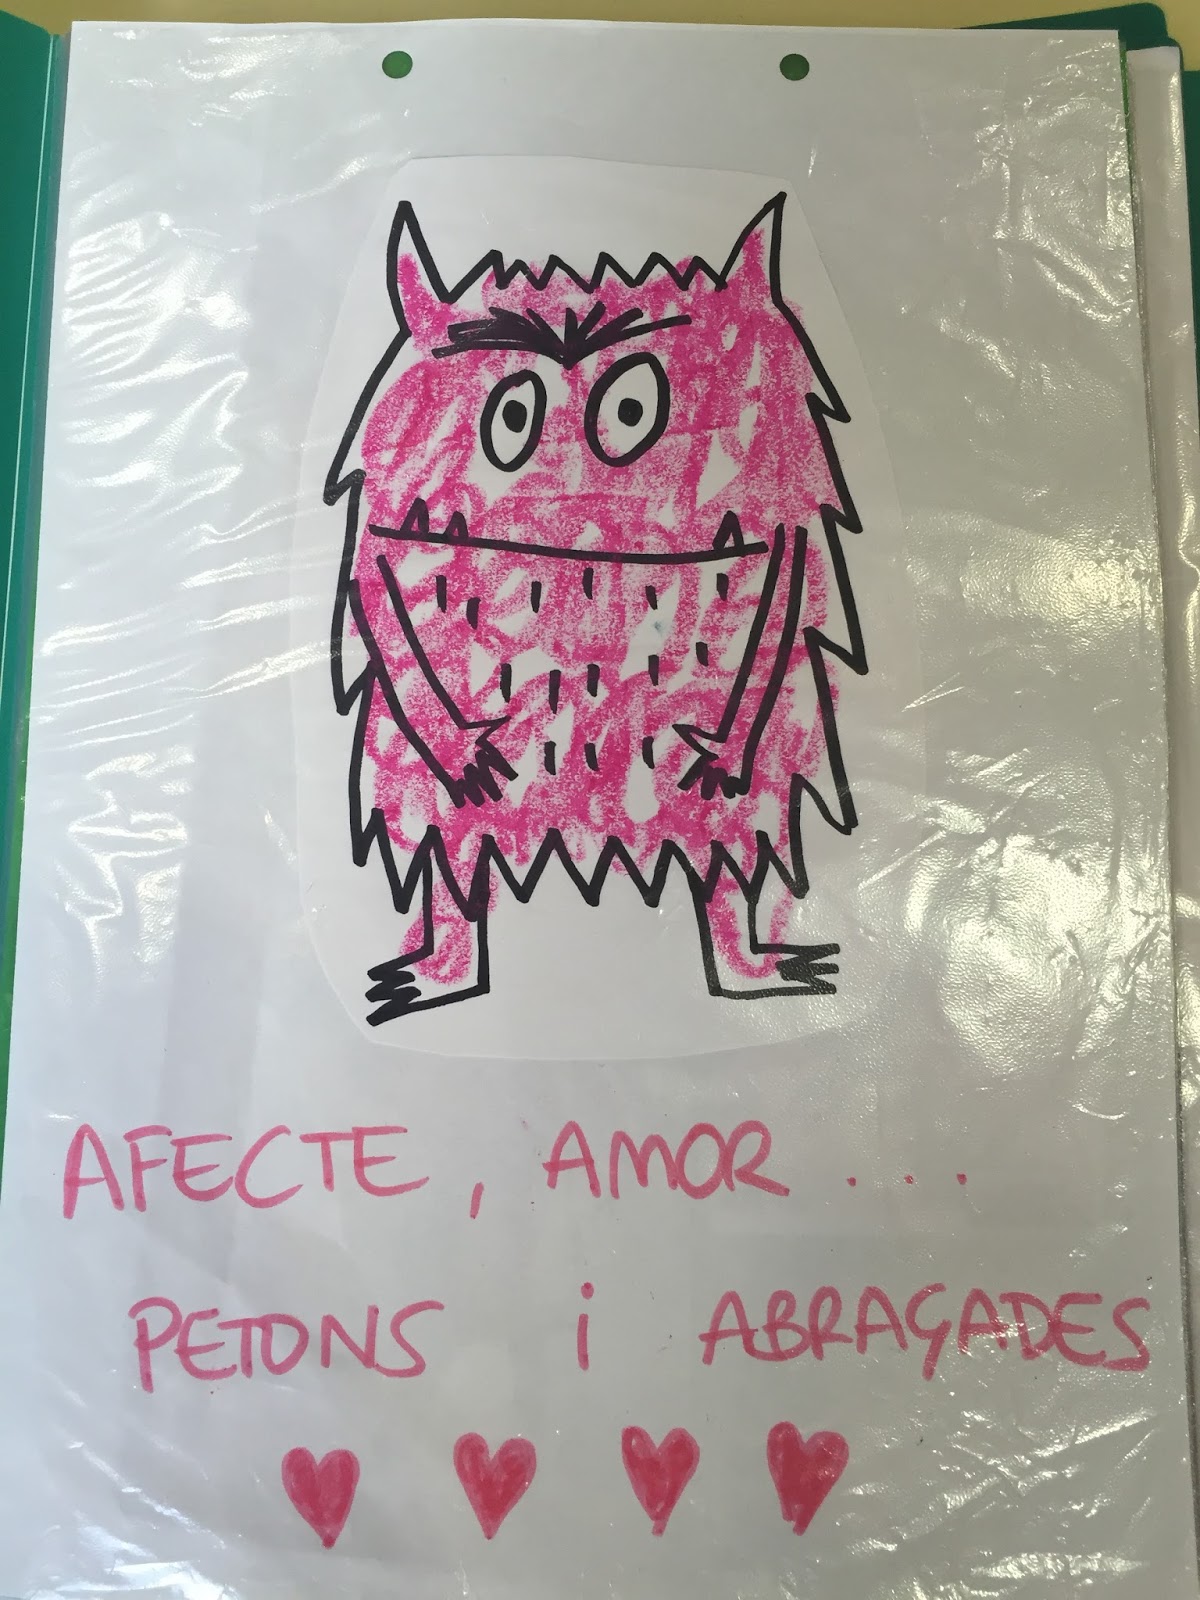 AFECTE, AMOR...
PETONS i ABRAÇADES